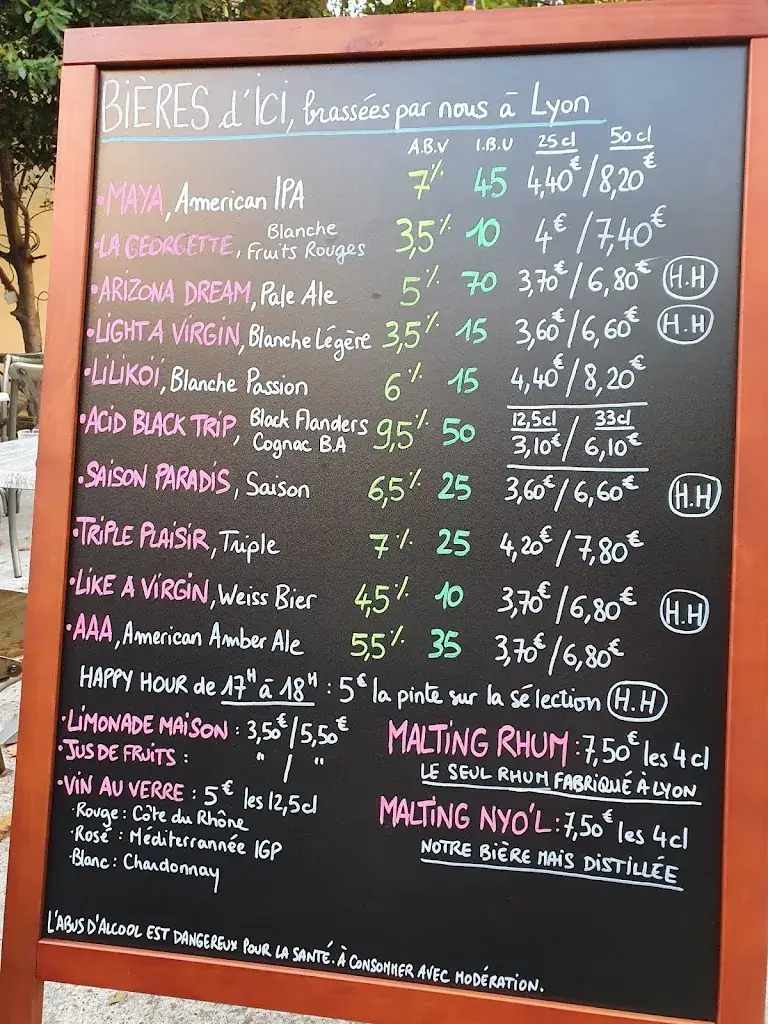 BIÈRES d'ICI, brassées par nous à Lyon
A.B.V I.B.U 25 cl 50 cl
•MAYA, American IPA 7% 45 4,40€/8,20€
•LA GEORGETTE, Blanche Fruits Rouges 3,5% 10 4€/7,40€
•ARIZONA DREAM, Pale Ale 5% 70 3,70€/6,80€ H.H
•LIGHT A VIRGIN, Blanche Légère 3,5% 15 3,60€/6,60€ H.H
•LILIKOÏ, Blanche Passion 6% 15 4,40€/8,20€
12,5cl 33cl
•ACID BLACK TRIP, Black Flanders Cognac B.A 9,5% 50 3,10€/6,10€
•SAISON PARADIS, Saison 6,5% 25 3,60€/6,60€ H.H
•TRIPLE PLAISIR, Triple 7% 25 4,20€/7,80€
•LIKE A VIRGIN, Weiss Bier 4,5% 10 3,70€/6,80€ H.H
•AAA, American Amber Ale 5,5% 35 3,70€/6,80€
HAPPY HOUR de 17H à 18H : 5€ la pinte sur la sélection H.H
•LIMONADE MAISON : 3,50€/5,50€
•JUS DE FRUITS : " / "
•VIN AU VERRE : 5€ les 12,5cl
•Rouge : Côte du Rhône
•Rosé : Méditerrannée IGP
•Blanc : Chardonnay
MALTING RHUM : 7,50€ les 4 cl
LE SEUL RHUM FABRIQUÉ À LYON
MALTING NYO'L : 7,50€ les 4cl
NOTRE BIÈRE MAIS DISTILLÉE
L'ABUS D'ALCOOL EST DANGEREUX POUR LA SANTÉ. À CONSOMMER AVEC MODÉRATION.